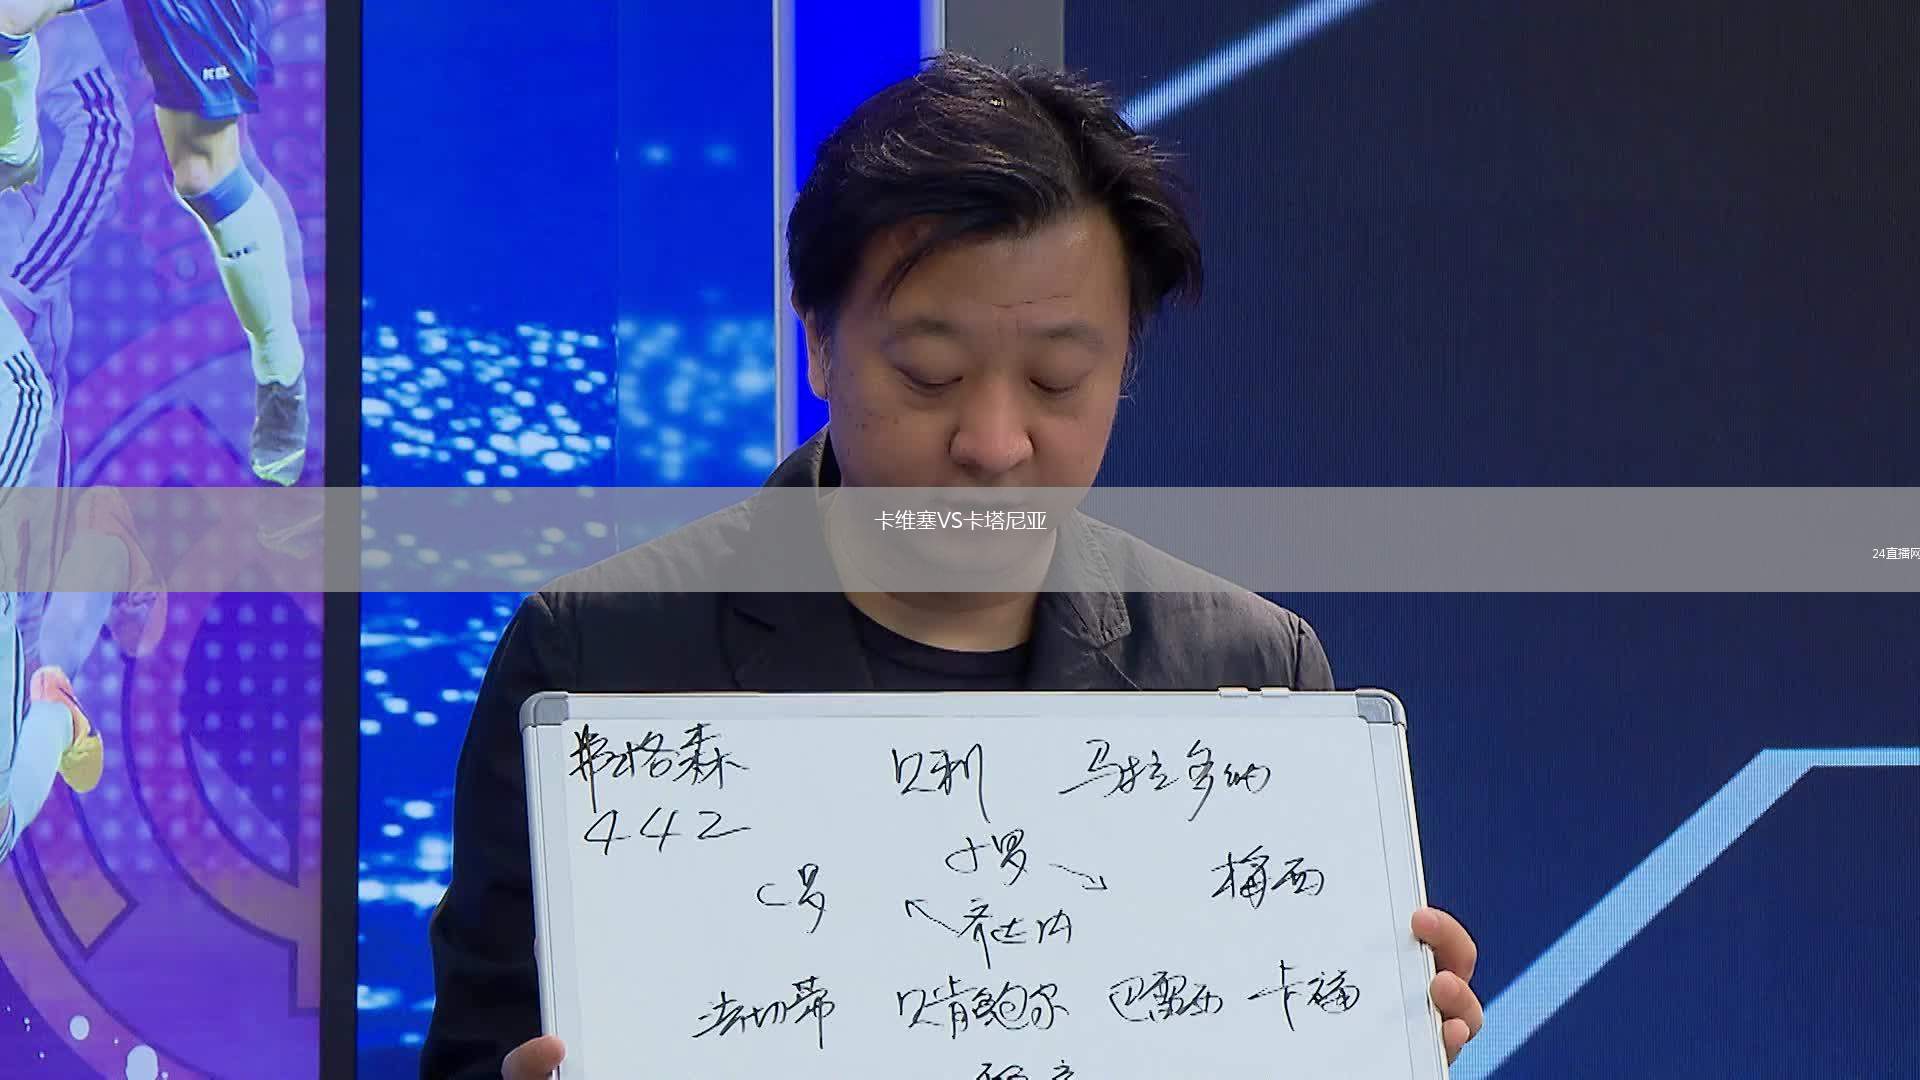 卡维塞VS卡塔尼亚
24直播网
弗格森 贝利 马拉多纳
442
小罗
C罗 梅西
齐达内
法切蒂 贝肯鲍尔 巴雷西 卡福